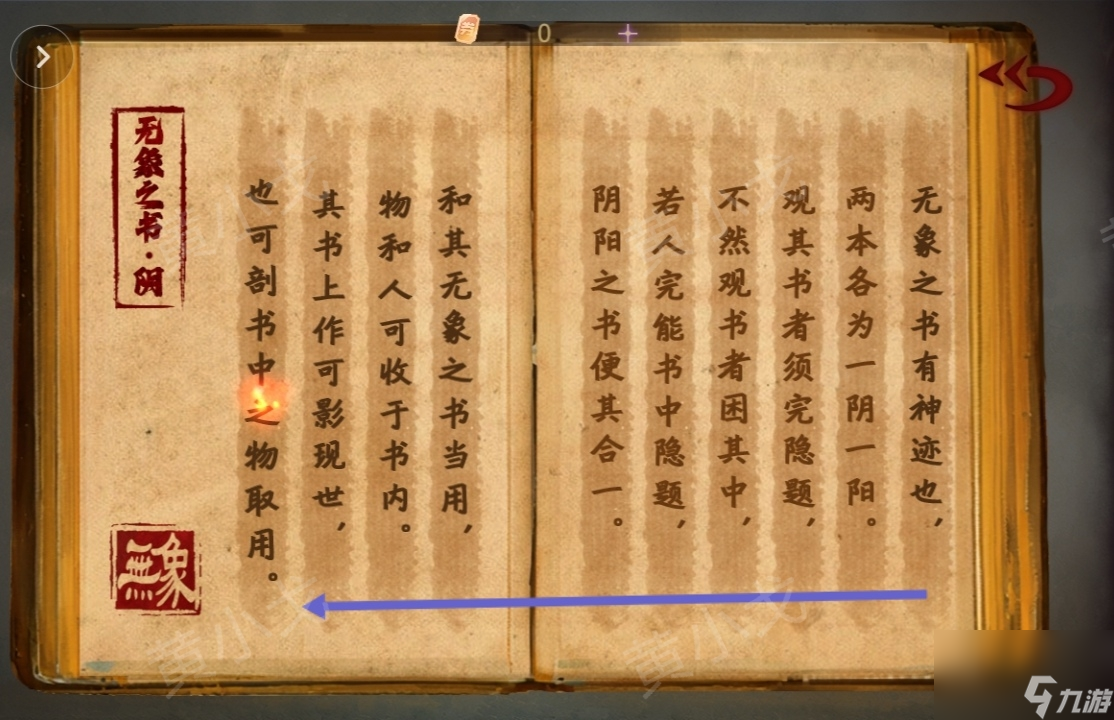 无象之书有神迹也，
两本各为一阴一阳。
观其书者须完隐题，
不然观书者困其中，
若人完能书中隐题，
阴阳之书便其合一。
和其无象之书当用，
物和人可收于书内。
其书上作可影现世，
也可剖书中之物取用。
无象之书·阴
無象
0
黄小文
九游